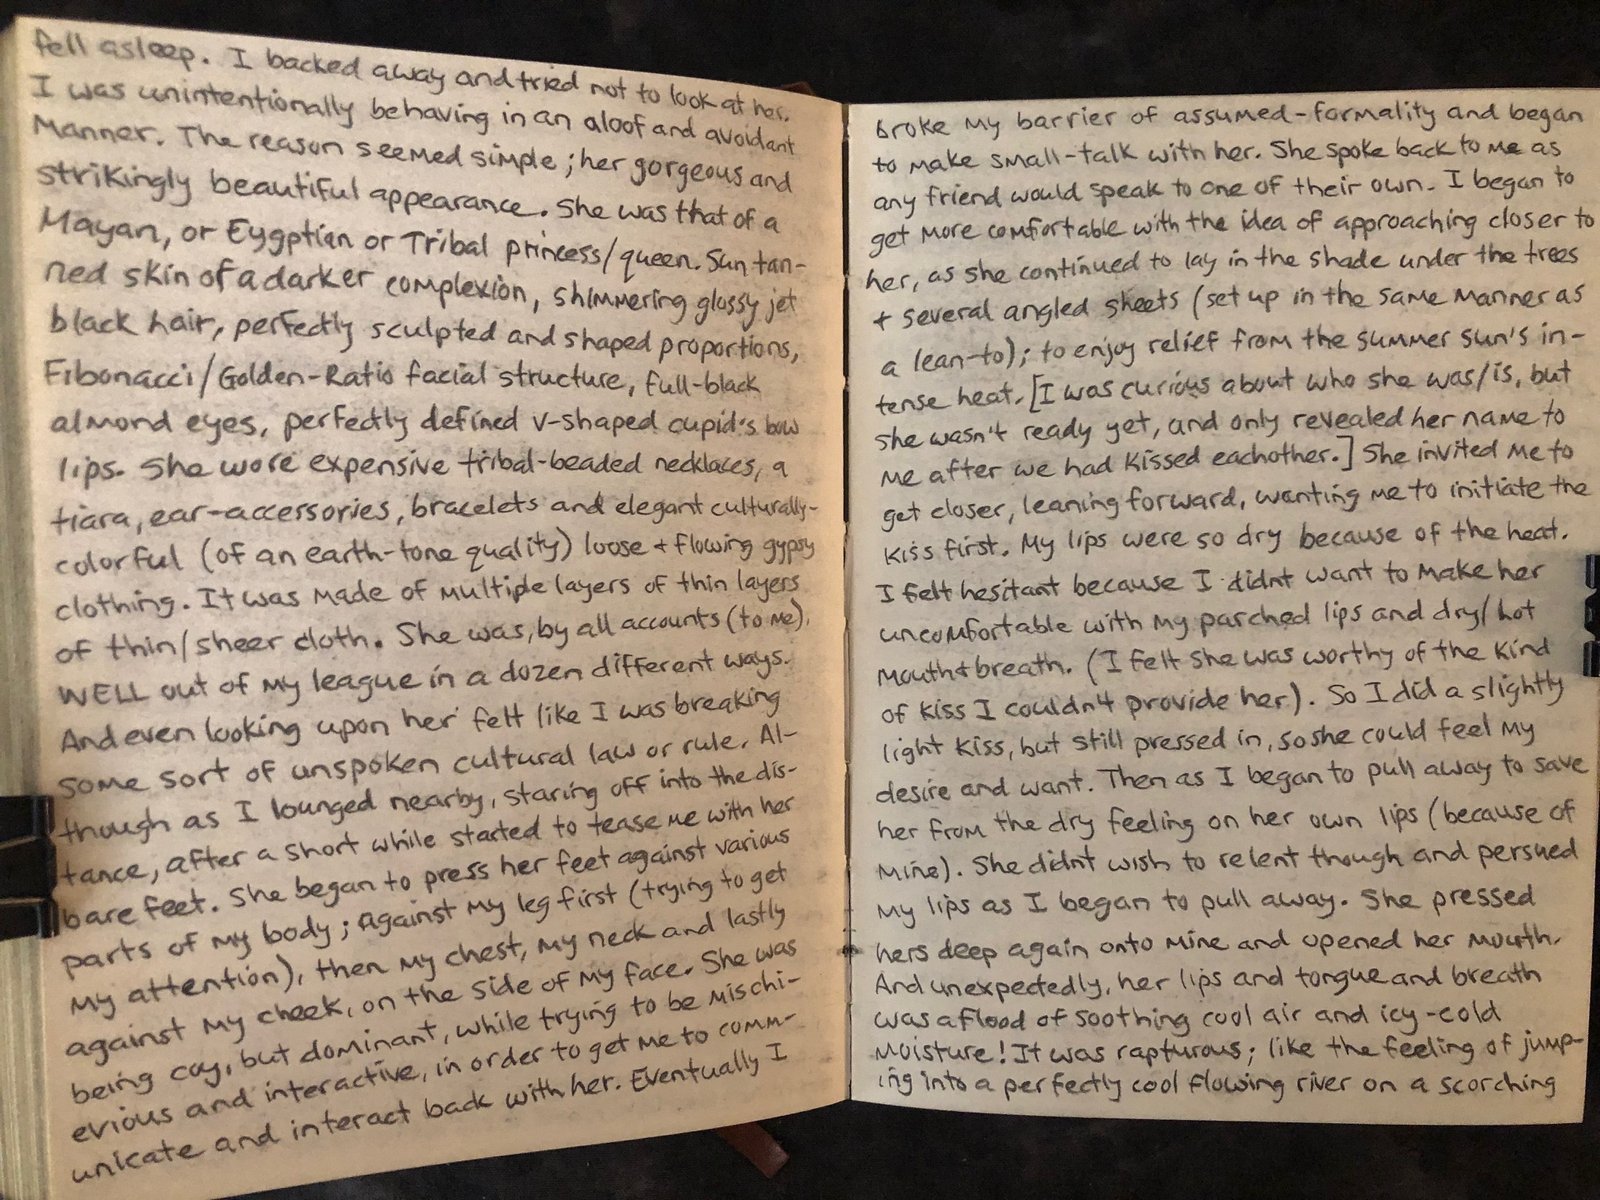 fell asleep. I backed away and tried not to look at her.
I was unintentionally behaving in an aloof and avoidant
Manner. The reason seemed simple; her gorgeous and
strikingly beautiful appearance. She was that of a
Mayan, or Eygptian or Tribal princess/queen. Sun tan-
ned skin of a darker complexion, shimmering glossy jet
black hair, perfectly sculpted and shaped proportions,
Fibonacci/Golden-Ratio facial structure, full-black
almond eyes, perfectly defined v-shaped cupid's bow
lips. She wore expensive tribal-beaded necklaces, a
tiara, ear-accessories, bracelets and elegant culturally-
colorful (of an earth-tone quality) loose + flowing gypsy
clothing. It was made of multiple layers of thin layers
of thin/sheer cloth. She was, by all accounts (to me),
WELL out of my league in a dozen different ways.
And even looking upon her felt like I was breaking
some sort of unspoken cultural law or rule. Al-
though as I lounged nearby, staring off into the dis-
tance, after a short while started to tease me with her
bare feet. She began to press her feet against various
parts of my body; against my leg first (trying to get
my attention), then my chest, my neck and lastly
against my cheek, on the side of my face. She was
being coy, but dominant, while trying to be mischi-
evious and interactive, in order to get me to comm-
unicate and interact back with her. Eventually I
broke my barrier of assumed-formality and began
to make small-talk with her. She spoke back to me as
any friend would speak to one of their own. I began to
get more comfortable with the idea of approaching closer to
her, as she continued to lay in the shade under the trees
+ several angled sheets (set up in the same manner as
a lean-to); to enjoy relief from the summer sun's in-
tense heat. [I was curious about who she was/is, but
she wasn't ready yet, and only revealed her name to
me after we had kissed eachother.] She invited me to
get closer, leaning forward, wanting me to initiate the
kiss first. My lips were so dry because of the heat.
I felt hesitant because I didnt want to make her
uncomfortable with my parched lips and dry/hot
mouth+breath. (I felt she was worthy of the kind
of kiss I couldn't provide her). So I did a slightly
light kiss, but still pressed in, so she could feel my
desire and want. Then as I began to pull away to save
her from the dry feeling on her own lips (because of
mine). She didnt wish to relent though and persued
my lips as I began to pull away. She pressed
hers deep again onto mine and opened her mouth.
And unexpectedly, her lips and tongue and breath
was a flood of soothing cool air and icy-cold
moisture! It was rapturous; like the feeling of jump-
ing into a perfectly cool flowing river on a scorching